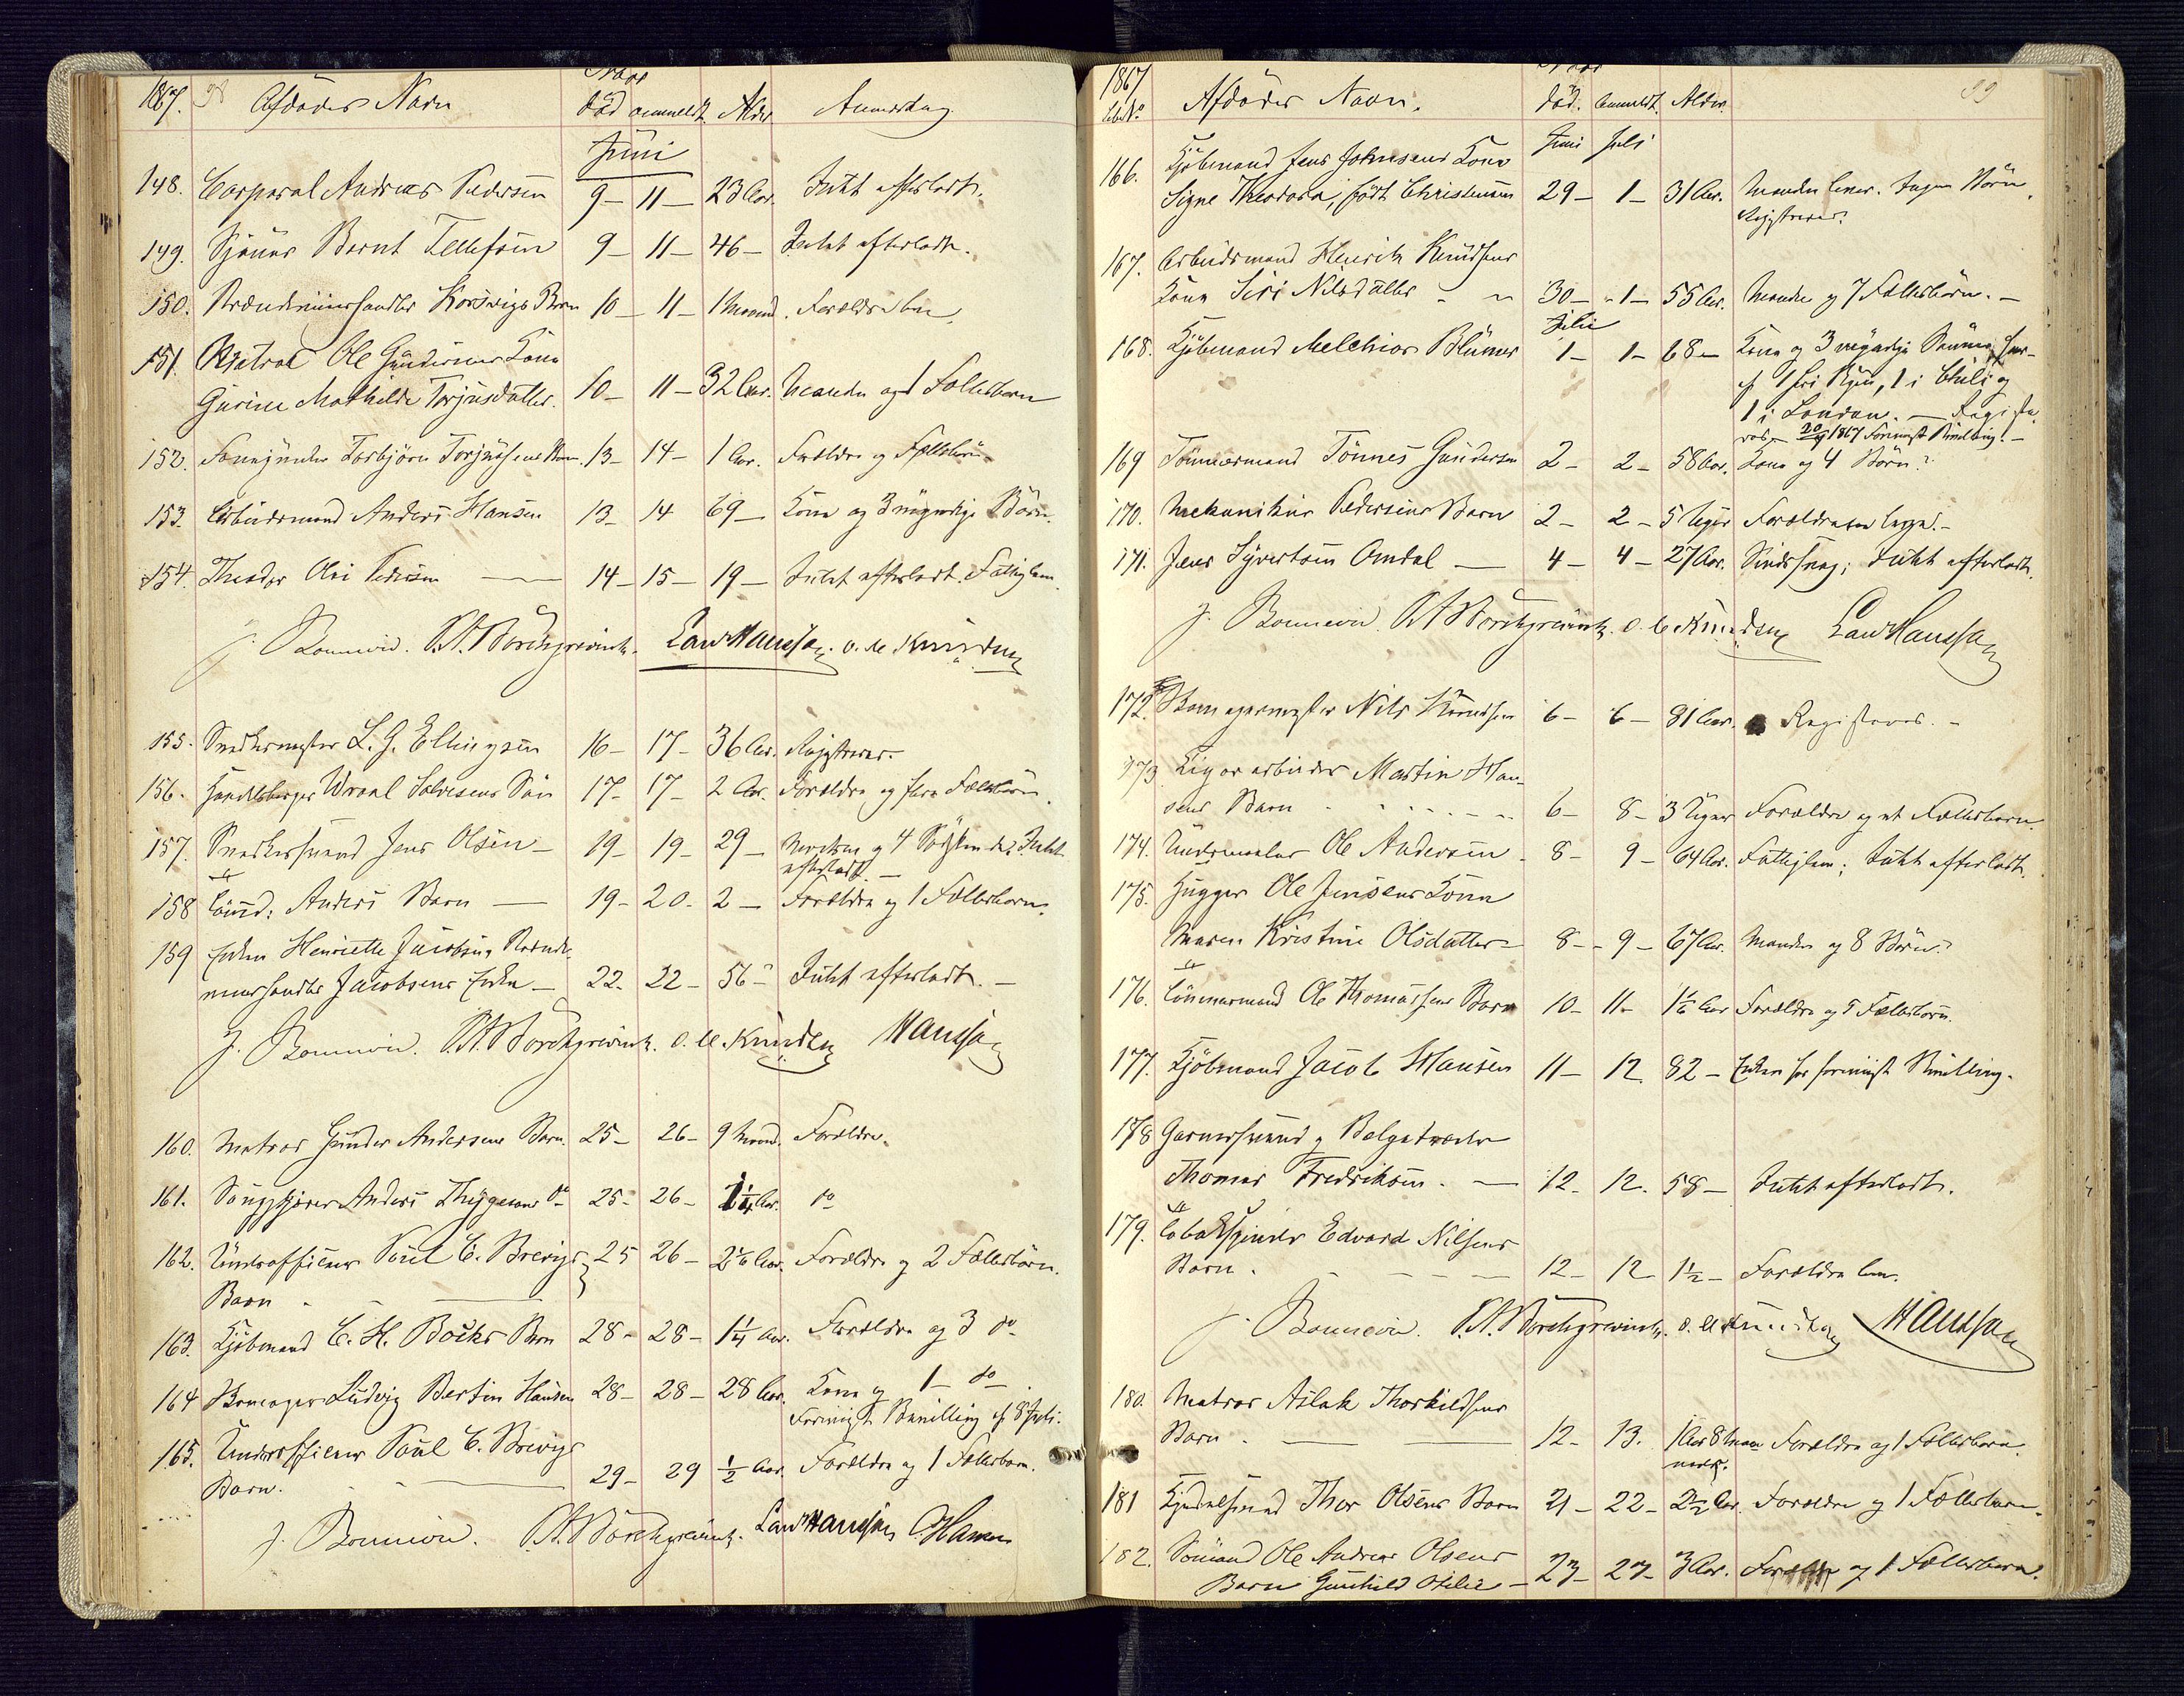 1867. 38 Afdødes Navn død anmeldt. Alder Anmerkning
Juni
148. Corporal Andreas Pedersen 9 – 11 – 23 Aar. Intet efterladt.
149. Sjøuer Bernt Tellefsen 9 – 11 – 46 – Intet efterladt.
150. Brændeviinshandler Korsvigs Barn 10 – 11 – 1 Maaned. Forældre lever.
151. Matros Ole Gundersens Kone
Gurine Mathilde Torjusdatter. 10 – 11 – 32 Aar. Manden og 1 Fællesbarn
152. Torbjørn Torjussens Barn. 13 – 14 – 1 Aar. Forældre og Fællesbørn.
153. Arbeidsmand Anders Hansen 13 – 14 69 – Kone og 3 myndige Børn.
154. Theodor Olai Pedersen — 14 – 15 – 19 – Intet efterladt. Fattiglem.
J. Bonnevie. Borchgrevink. Laur Hanssen. O. C. Knudsen
155. Snedkermester L. G. Ellingsen 16 – 17 – 36 Aar. Registreres.
156. Handelsborger Wraal Salvesens Søn 17 – 17 – 2 Aar. Forældre og flere Fællesbørn.
157. Snedkersvend Jens Olsen – 19 – 19 – 29 – Moderen og 4 Sødskende; Intet
efterladt. –
158 Anders Barn — 19 – 20 – 2 – Forældre og 1 Fællesbarn.
159 Enken Henriette Jacobsen, Brænde-
viinshandler Jacobsens Enke – 22. – 22 – 56 – Intet efterladt. –
J. Bonnevie. Borchgrevink. O. C. Knudsen Hanssen
160. Matros Gunder Andersens Barn. 25 – 26 – 9 Maan. Forældre.
161. Anders Thygesens do 25 – 26 – 1¼ Aar. do
162. Underofficeer Poul C. Brevigs 25 26 – Aar. Forældre og 2 Fællesbørn.
Barn
163. Kjøbmand C. H. Bocks Barn 28 – 28 – 1¼ Aar. Forældre og 3 do
164 Skomager Ludvig Bertin Hansen 28 – 28 – 28 Aar. Kone og 1 – do
Foreviist Bevilling af 8 Juli.
165. Underofficeer Poul C. Brevigs
Barn. 29 – 29 ½ Aar. Forældre og 1 Fællesbarn.
J. Bonnevie. Borchgrevink. Laur Hanssen Hansen
1867 Afdødes Navn. død. Anmeldt. Alder. 39
Løbe No
Juni Juli
166. Kjøbmand Jens Johnsens Kone
Signe Theodora, født Christensen 29 – 1 – 31 Aar. Manden lever. Ingen Børn.
Registreres.
167. Arbeidsmand Henrik Knudsens
Kone Siri Nilsdatter 30 – 1 – 55 Aar. Manden og 7 Fællesbørn. –
Julii
168. Kjøbmand Melchior Blumer 1 – 1 – 68 – Kone og 3 myndige Sønner, hvor-
af 1 her i Byen, 1 i Chili og
1 i London. – Registe-
res. – 20/9 1867 Foreviist Bevilling. –
169 Tømmermand Tønnes Gundersen 2 – 2 – 58 Aar. Kone og 4 Børn.
170. Mekanikus Pedersens Barn 2 – 2 – 5 Uger Forældrene lever. –
171. Jens Syvertsen Omdal — 4 – 4 – 27 Aar. Sindssvag; Intet efterladt.
J. Bonnevie. Borchgrevink. O. C. Knudsen Laur Hanssen
172. Skomagermester Nils Knudsen 6 – 6 – 81 Aar. Registreres. –
173 Martin Han-
sens Barn 6 – 8 – 3 Uger Forældre og et Fællesbarn.
174. Ole Andersen 8 – 9 – 64 Aar. Fattiglem; Intet efterladt.
175. Hugger Ole Jensens Kone
Maren Kristine Olsdatter – 8 – 9 – 67 Aar. Manden og 8 Børn.
176. Tømmermand Ole Thomassens Barn 10 – 11 – 1½ Aar Forældre og 5 Fællesbørn.
177. Kjøbmand Jacob Hansen 11 – 12 82 – Enken har foreviist Bevilling.
178 Garversvend og Belgetræder
Thomas Fredriksen. — 12 – 12. 58 – Intet efterladt.
179. Tobakspinder Edvard Nilsens
Barn. 12 – 12 1½ – Forældre lever.
J. Bonnevie. Borchgrevink. O. C. Knudsen Hanssen
180. Matros Aslak Thorkildsens
Barn. 12 – 13. 1 Aar 8 Maa- Forældre og 1 Fællesbarn.
neder.
181 Thor Olsens Barn 21 – 22 – 2½ Aar. Forældre og 1 Fællesbarn.
182. Sømand Ole Andreas Olsens
Barn Gunhild Otilie – 27 – 27 – 3 Aar. Forældre og 1 Fællesbarn.